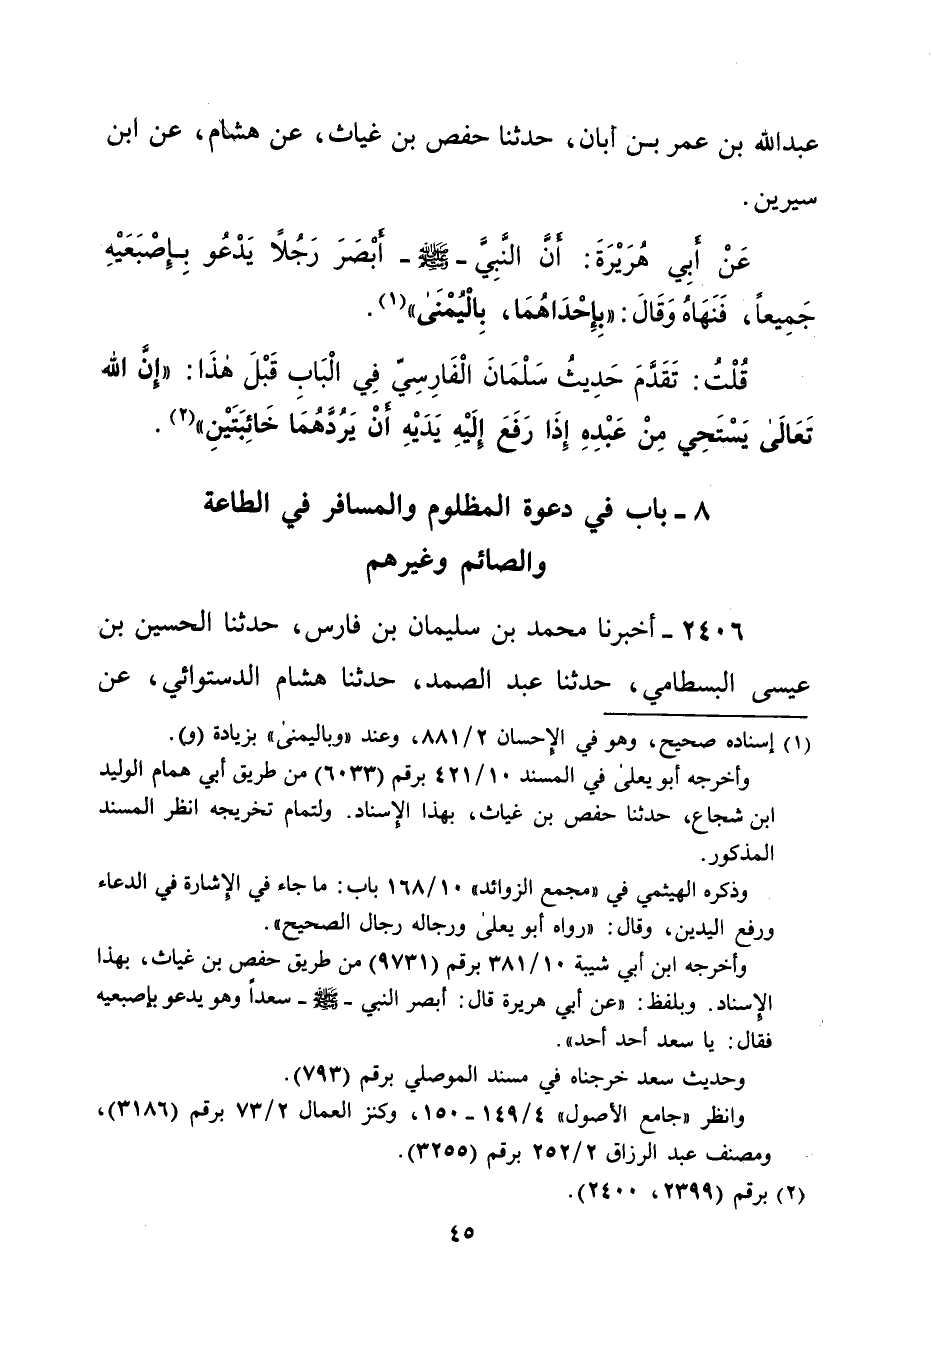 عبدالله بن عمر بـن أبان، حدثنا حفص بن غياث، عن هشام، عن ابن
سيرين.
عَنْ أَبِي هُرَيْرَةَ: أَنَّ النَّبِيَّ - ﷺ - أَبْصَرَ رَجُلًا يَدْعُو بِـإِصْبَعَيْهِ
جَمِيعاً، فَنَهَاهُ وَقَالَ: «بِإِحْدَاهُمَا، بِالْيُمْنَىٰ»(١).
قُلْتُ: تَقَدَّمَ حَدِيثُ سَلْمَانَ الْفَارِسِيّ فِي الْبَابِ قَبْلَ هٰذَا: «إِنَّ الله
تَعَالَىٰ يَسْتَحِي مِنْ عَبْدِهِ إِذَا رَفَعَ إِلَيْهِ يَدَيْهِ أَنْ يَرُدَّهُمَا خَائِبَتَيْنِ»(٢).
٨ - باب في دعوة المظلوم والمسافر في الطاعة
والصائم وغيرهم
٢٤٠٦ - أخبرنا محمد بن سليمان بن فارس، حدثنا الحسين بن
عيسى البسطامي، حدثنا عبد الصمد، حدثنا هشام الدستوائي، عن
(١) إسناده صحيح، وهو في الإحسان ٨٨١/٢، وعند «وباليمنىٰ» بزيادة (و).
وأخرجه أبو يعلىٰ في المسند ٤٢١/١٠ برقم (٦٠٣٣) من طريق أبي همام الوليد
ابن شجاع، حدثنا حفص بن غياث، بهذا الإسناد. ولتمام تخريجه انظر المسند
المذكور.
وذكره الهيثمي في «مجمع الزوائد» ١٦٨/١٠ باب: ما جاء في الإشارة في الدعاء
ورفع اليدين، وقال: «رواه أبو يعلىٰ ورجاله رجال الصحيح».
وأخرجه ابن أبي شيبة ٣٨١/١٠ برقم (٩٧٣١) من طريق حفص بن غياث، بهذا
الإسناد. وبلفظ: «عن أبي هريرة قال: أبصر النبي - ﷺ - سعداً وهو يدعو بإصبعيه
فقال: يا سعد أحد أحد».
وحديث سعد خرجناه في مسند الموصلي برقم (٧٩٣).
وانظر «جامع الأصول» ١٤٩/٤ - ١٥٠، وكنز العمال ٧٣/٢ برقم (٣١٨٦)،
ومصنف عبد الرزاق ٢٥٢/٢ برقم (٣٢٥٥).
(٢) برقم (٢٣٩٩، ٢٤٠٠).
٤٥